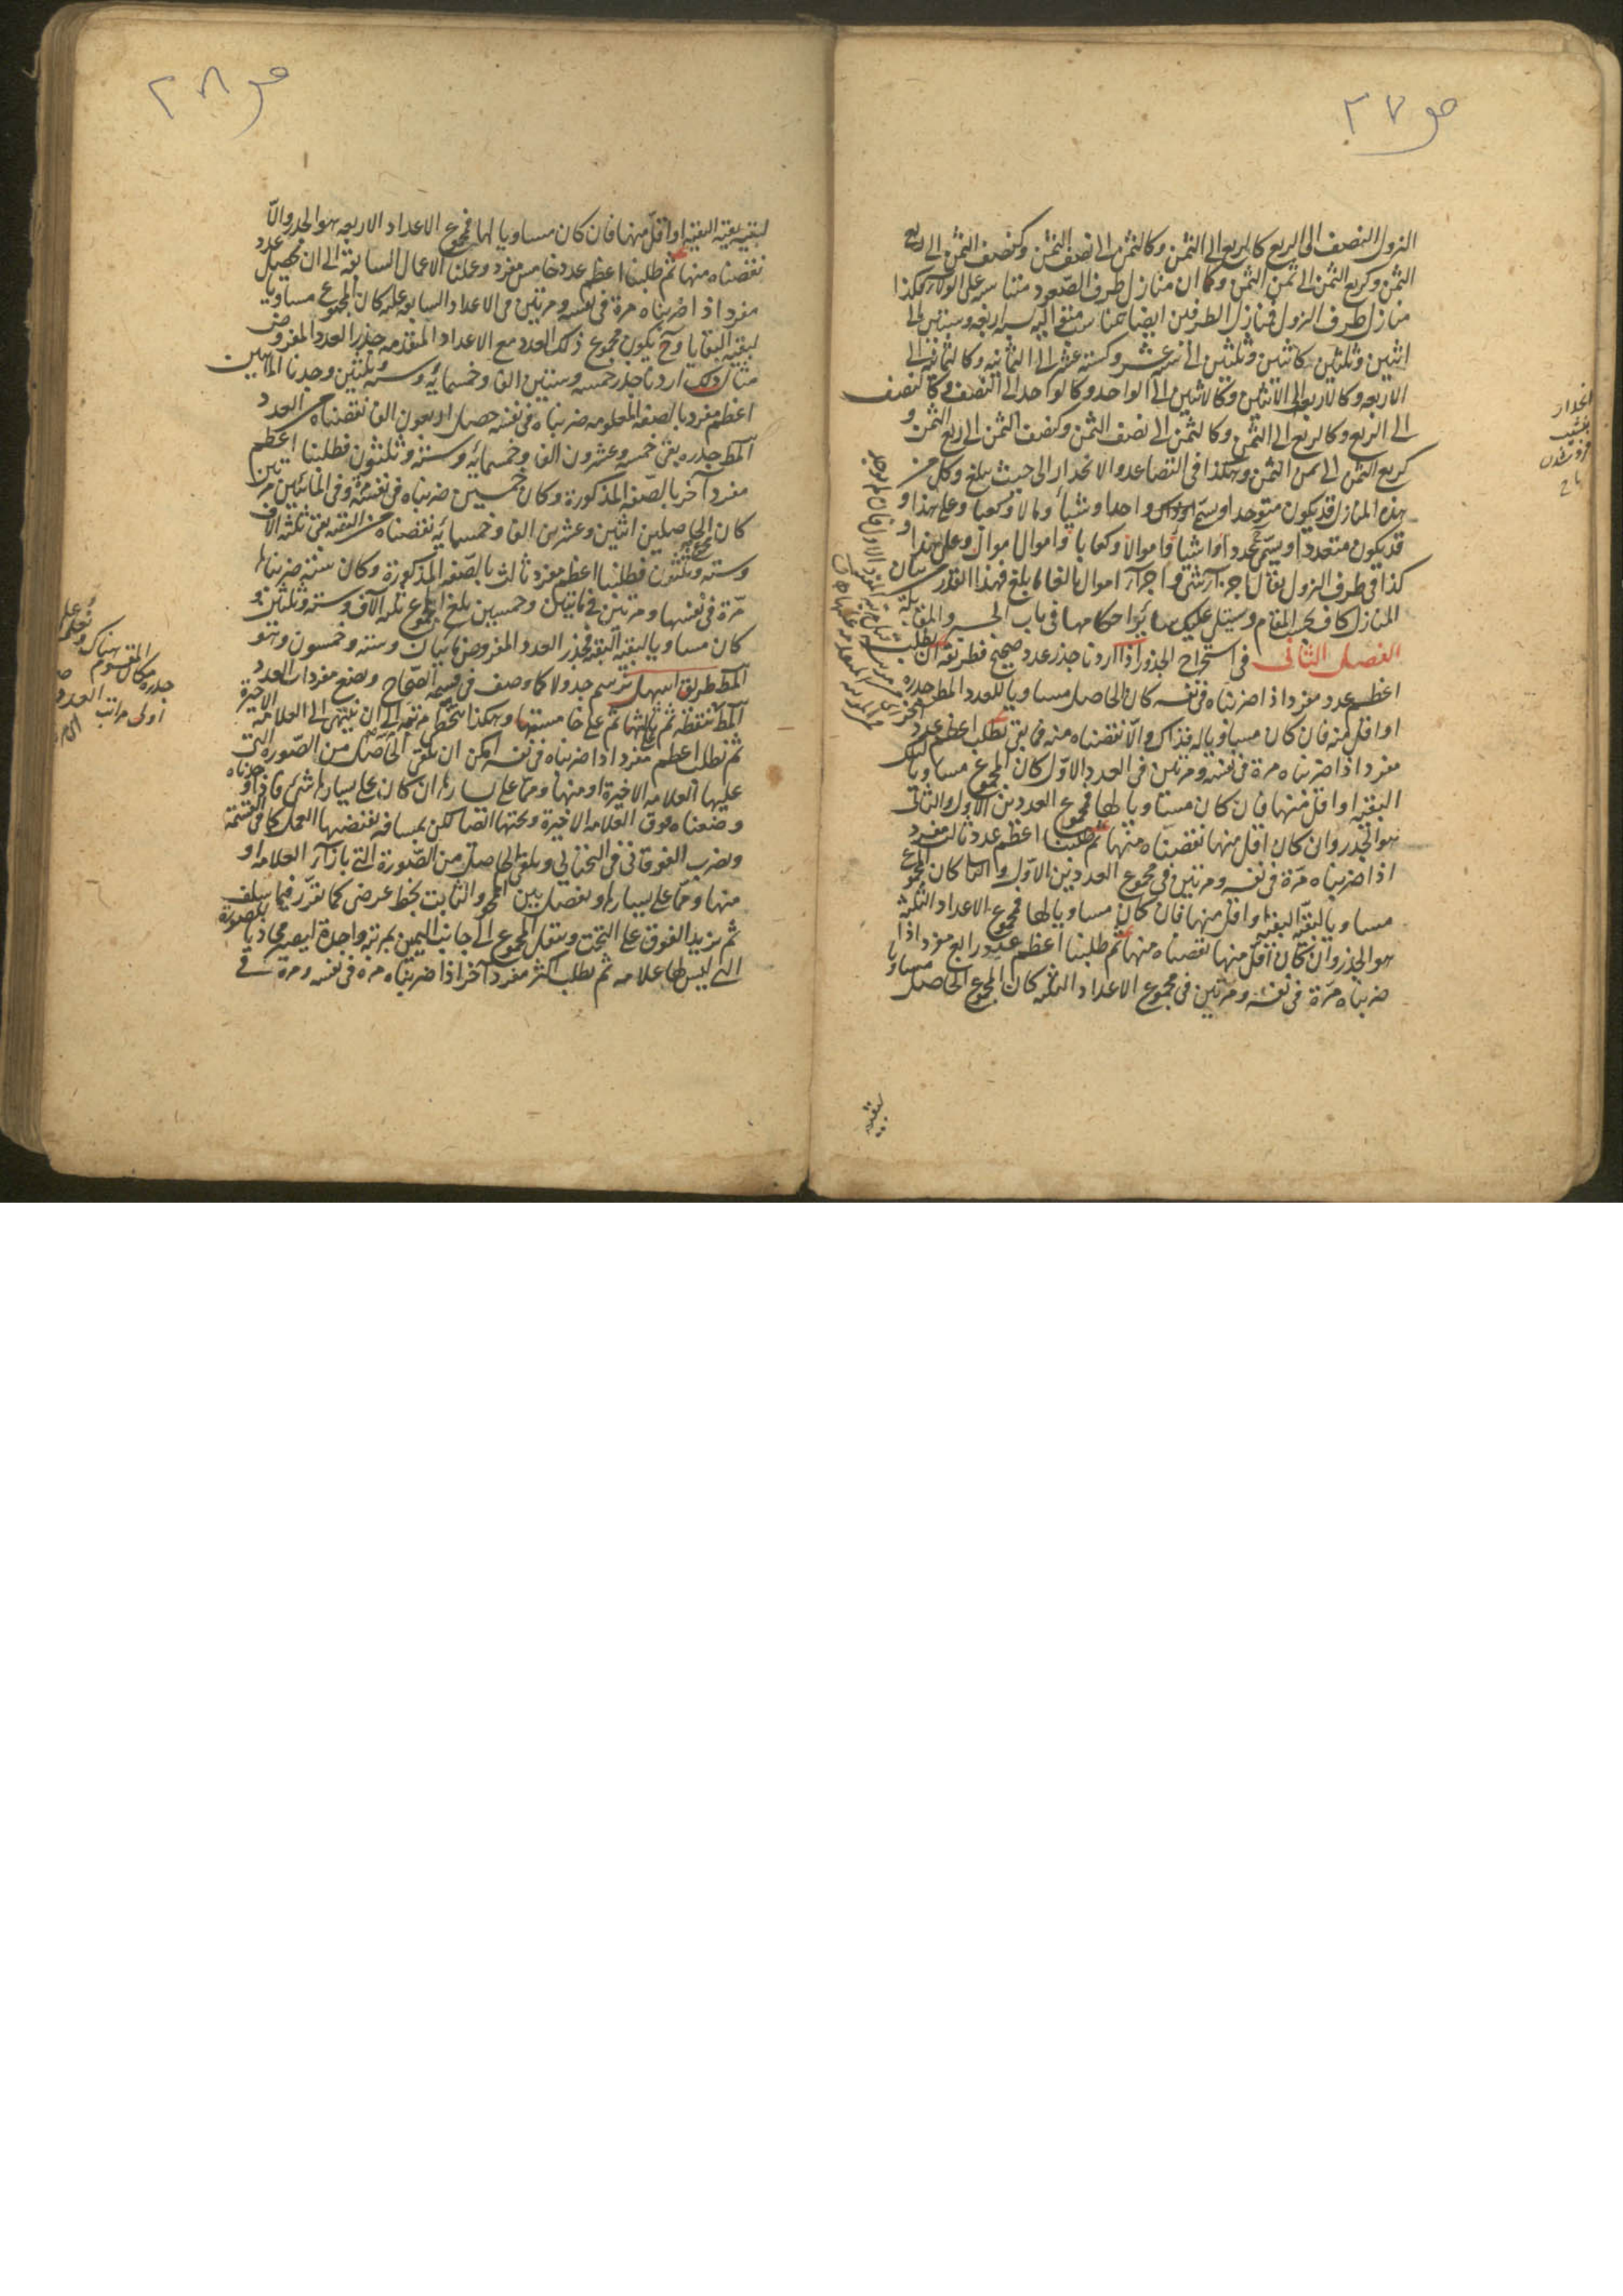 ص ٢٧
النزول النصف الى الربع كالربع الى الثمن وكالثمن الى نصف الثمن وكنصف الثمن الى ربع
الثمن وكربع الثمن الى ثمن الثمن وكما ان منازل طرف الصعود متناسبه على الولاء هكذا
منازل طرف النزول فمنازل الطرفين ايضا متناسبه اربعه وستين الى
اثنين وثلثين كاثنين وثلثين الى سته عشر وكسته عشر الى الثمانيه وكالثمانيه الى
الاربعه وكالاربعه الى الاثنين وكالاثنين الى الواحد وكالواحد الى النصف وكالنصف
الى الربع وكالربع الى الثمن وكالثمن الى نصف الثمن وكنصف الثمن الى ربع الثمن و
كربع الثمن الى ثمن الثمن وهكذا فى التصاعد والانحدار الى حيث يبلغ وكل من
هذه المنازل قد يكون متوحدا ويسمى واحدا وشيأ ومالا وكعبا وعلى هذا و
قد يكون متعددا ويسمى عددا واشياء واموالا وكعابا واموال اموال وعلى هذا و
كذا فى طرف النزول يقال اجزاء شئ واجزاء اموال بالغا ما بلغ فهذا القدر من بيان
المنازل كاف بحسب المقام وسيتلى عليك بواقى احكامها فى باب الجبر والمقابلة
الفصل الثانى فى استخراج الجذور اذا اردنا جذر عدد صحيح فطريقه ان يطلب
اعظم عدد مفرد اذا ضربناه فى نفسه كان الحاصل مساويا للعدد المط جذره
او اقل منه فان كان مساويا له فذاك والا نقصناه منه فما بقى نطلب اعظم عدد
مفرد اذا ضربناه مرة فى نفسه ومرتين فى العدد الاول كان المجموع مساويا لتلك
البقيه او اقل منها فان كان مساويا لها فمجموع العددين الاول والثانى
هو الجذر وان كان اقل منها نقصناه منها ثم طلبنا اعظم عدد ثالث مفرد
اذا ضربناه مرة فى نفسه ومرتين فى مجموع العددين الاول والثانى كان المجموع
مساويا لبقيه البقيه او اقل منها فان كان مساويا لها فمجموع الاعداد الثلثة
هو الجذر وان كان اقل منها نقصناه منها ثم طلبنا اعظم عدد رابع مفرد اذا
ضربناه مرة فى نفسه ومرتين فى مجموع الاعداد الثلثه كان المجموع الحاصل مساويا
لبقيه
ص ٢٨
لبقيه بقيه البقيه او اقل منها فان كان مساويا لها فمجموع الاعداد الاربعه هو الجذر والا
نقصناه منها ثم طلبنا اعظم عدد خامس مفرد وعملنا الاعمال السابقة الى ان يحصل عدد
مفرد اذا ضربناه مرة فى نفسه ومرتين فى الاعداد السابقه عليه كان المجموع مساويا
لبقيه البقايا وح يكون مجموع ذلك العدد مع الاعداد المتقدمه جذر العدد المفروض
مثال ذلك اردنا جذر خمسه وستين الفا وخمسمايه وسته وثلثين وجدنا المائتين
اعظم مفرد بالصفه المعلومه ضربناه فى نفسه حصل اربعون الفا نقصناه من العدد
المط جذره بقى خمسه وعشرون الفا وخمسمايه وسته وثلثون فطلبنا اعظم
مفرد آخر بالصفه المذكورة وكان خمسين ضربناه فى نفسه مرة وفى المائتين مرتين
كان الحاصلين اثنين وعشرين الفا وخمسمايه نقصناه من البقيه بقى ثلثه الاف
وسته وثلثون فطلبنا اعظم مفرد ثالث بالصفه المذكورة وكان سته ضربناها
مرة فى نفسها ومرتين فى مايتين وخمسين بلغ المجموع ثلثه الاف وسته وثلثين و
كان مساويا لبقيه البقيه فجذر العدد المفروض مايتان وسته وخمسون وهو
المط طريق اسهل نرسم جدولا كما وصف فى قسمه الصحاح ونضع مفردات العدد
المط ننقطه ثم ثالثها ثم على خامستها وهكذا نتخطى مرتبه الى ان ينتهى الى العلامه الاخيرة
ثم نطلب اعظم مفرد اذا ضربناه فى نفسه امكن ان يلقى الحاصل من الصورة التى
عليها العلامه الاخيرة او منها ومما على يسارها ان كان على يسارها شئ فاذا وجدناه
وضعناه فوق العلامه الاخيرة وتحتها ايضا لكن بمسافه يقتضيها العمل كما فى القسمه
ونضرب الفوقانى فى التحتانى ونلقى الحاصل من الصورة التى بازاء العلامه او
منها ومما على يسارها ونفصل بين المحو والثابت بخط عرضى كما تقرر فيما سلف
ثم نزيد الفوق على التحت وننقل المجموع الى جانب اليمين بمرتبه واحدة ليصير محاذيا للصورة
التى ليس لها علامه ثم نطلب اكثر مفرد آخر اذا ضربناه مره فى نفسه ومره فى